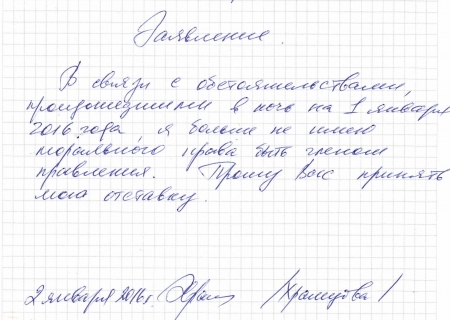 Заявление.
В связи с обстоятельствами,
произошедшими в ночь на 1 января
2016 года, я больше не имею
морального права быть членом
правления. Прошу Вас принять
мою отставку.
2 января 2016г. /Храмцова/